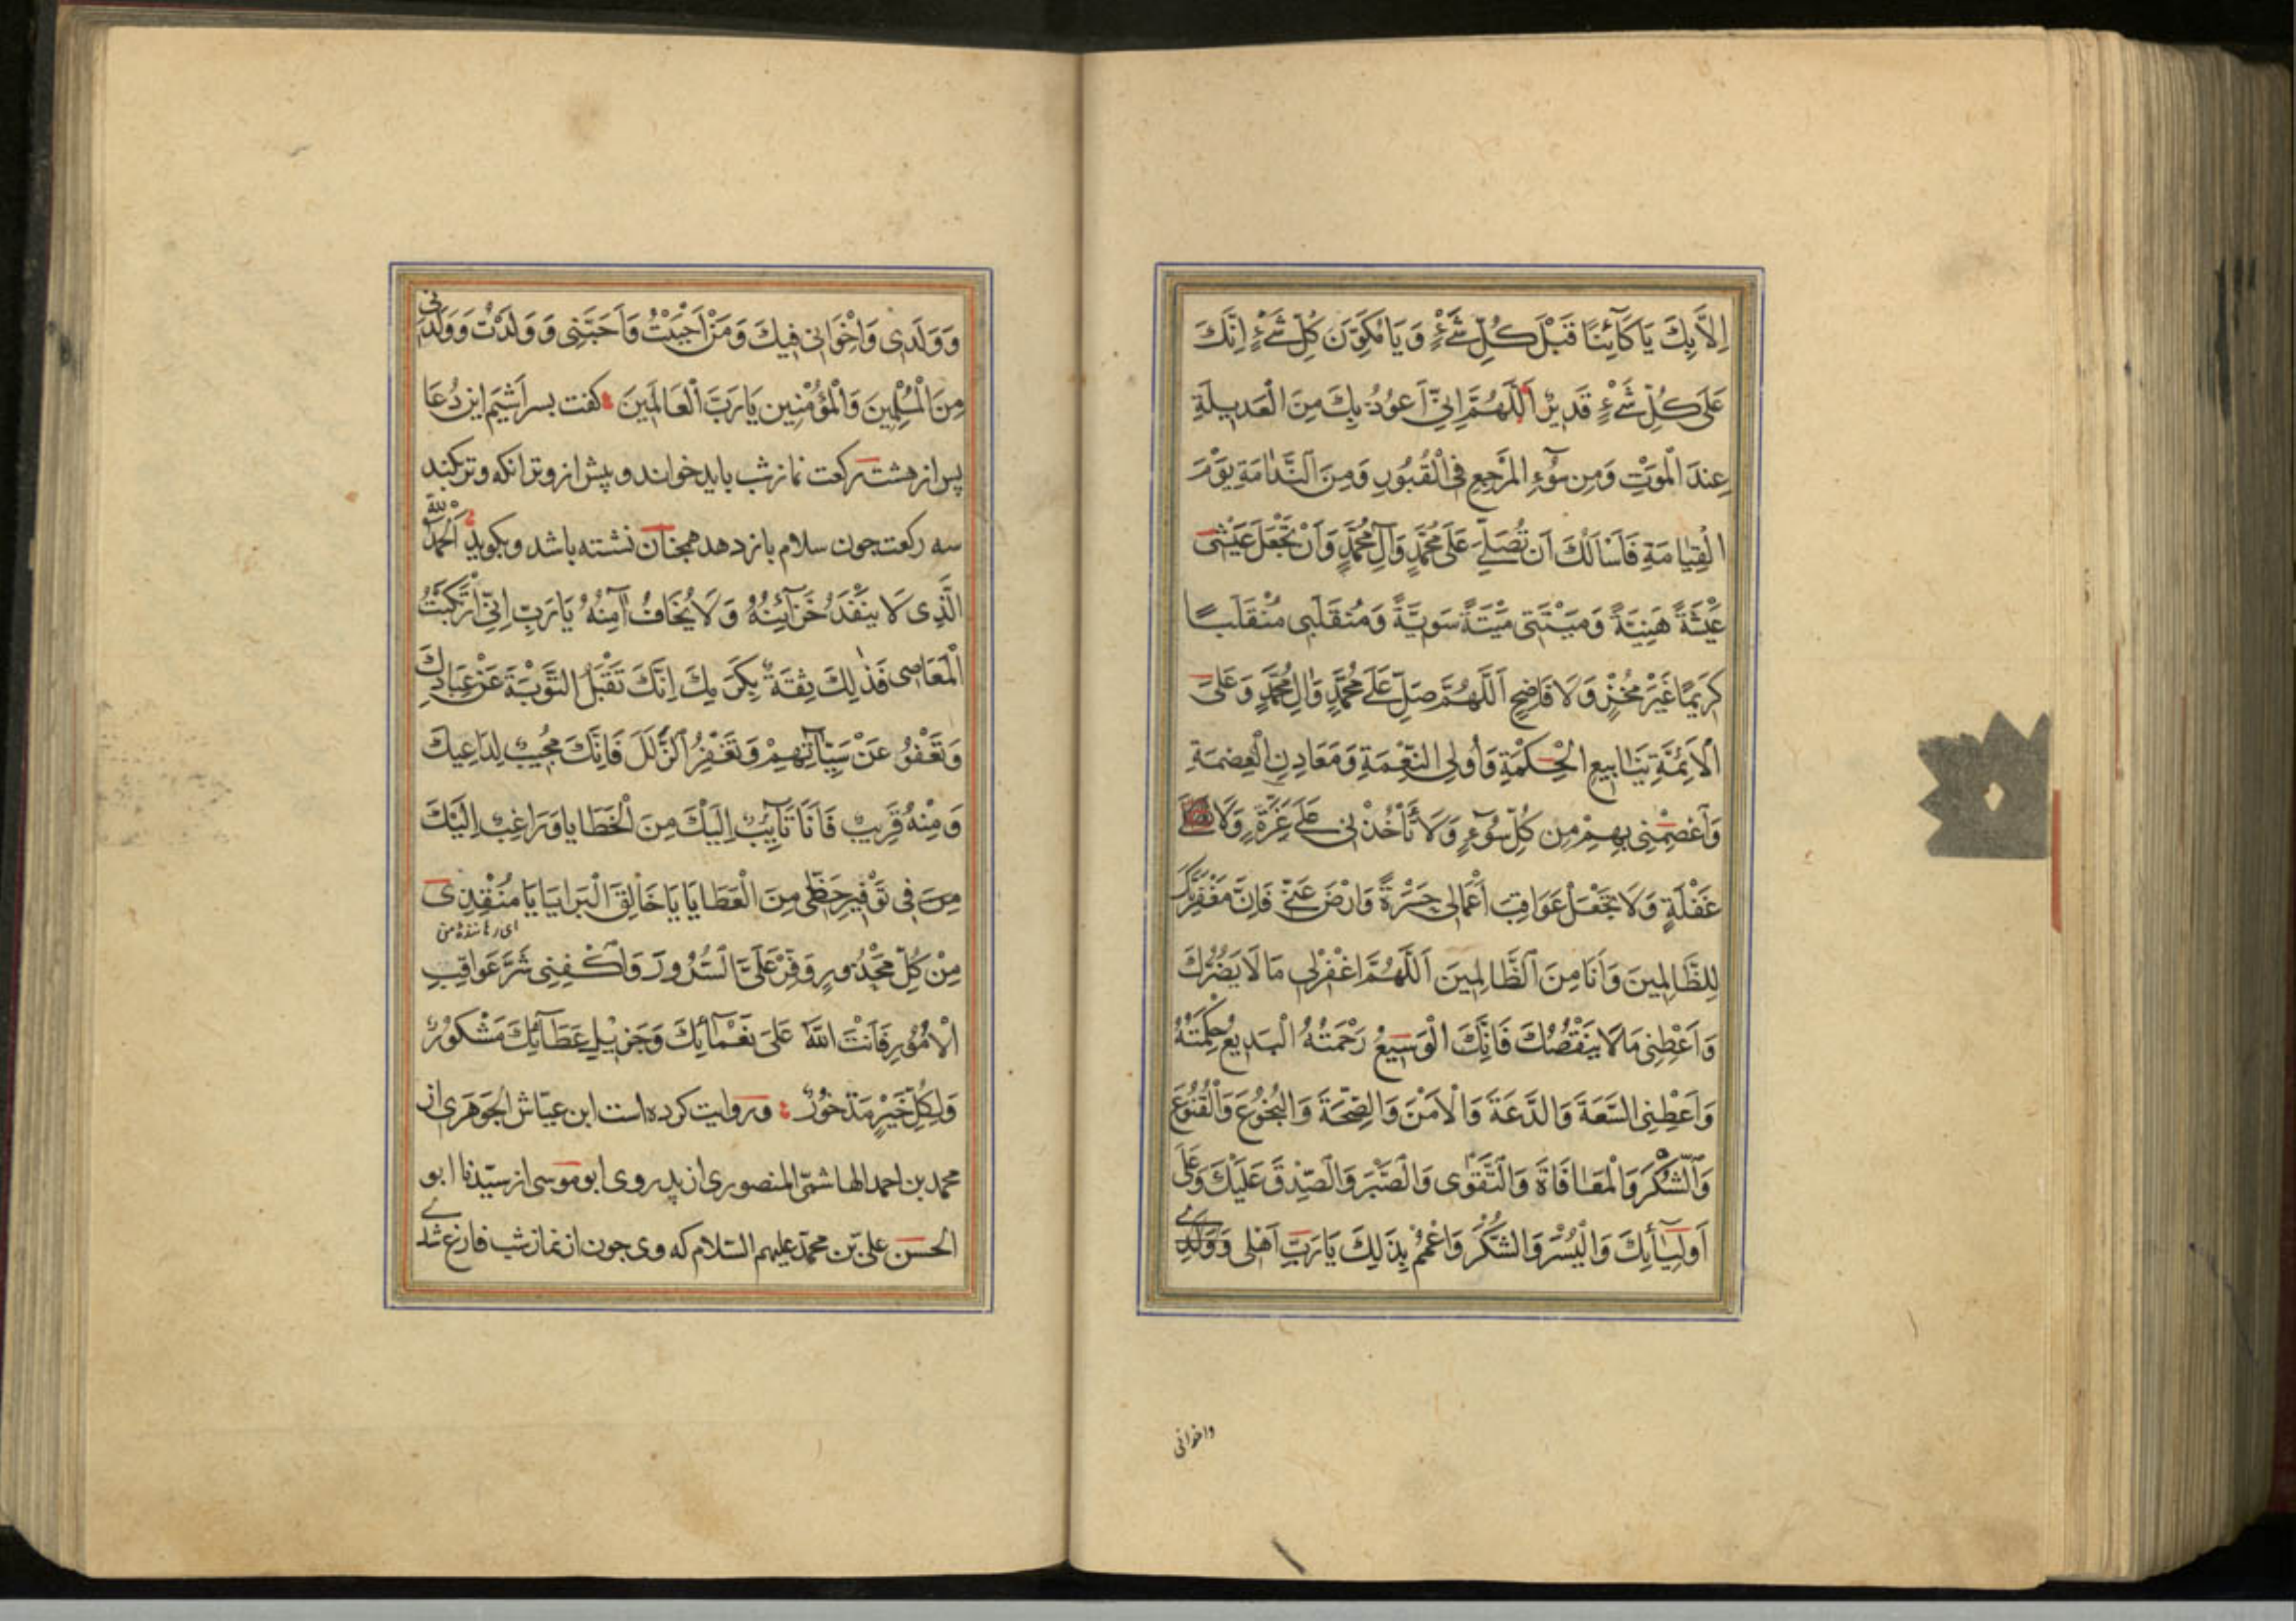 اِلاَّ بِكَ يَا كَآئِنًا قَبْلَ كُلِّ شَيْءٍ وَيَا مُكَوِّنَ كُلِّ شَيْءٍ اِنَّكَ
عَلَى كُلِّ شَيْءٍ قَدِيرٌ اَللَّهُمَّ اِنِّي اَعُوذُ بِكَ مِنَ الْعَدِيلَةِ
عِندَ الْمَوْتِ وَمِن سُوٓءِ الْمَرْجِعِ فِي الْقُبُورِ وَمِنَ النَّدَامَةِ يَوْمَ
الْقِيَامَةِ فَاَسْاَلُكَ اَن تُصَلِّيَ عَلَى مُحَمَّدٍ وَآلِ مُحَمَّدٍ وَاَنْ تَجْعَلَ عَيْشَتِي
عَيْشَةً هَنِيَّةً وَمَيْتَتِي مَيْتَةً سَوِيَّةً وَمُنْقَلَبِي مُنْقَلَبًا
كَرِيمًا غَيْرَ مُخْزٍ وَلَا فَاضِحٍ اَللَّهُمَّ صَلِّ عَلَى مُحَمَّدٍ وَالِ مُحَمَّدٍ وَعَلَى
الْاَئِمَّةِ يَنَابِيعِ الْحِكْمَةِ وَاُولِي النِّعْمَةِ وَمَعَادِنِ الْعِصْمَةِ
وَاَعْصِمْنِي بِهِمْ مِن كُلِّ سُوٓءٍ وَلَا تَأْخُذْنِي عَلَى غِرَّةٍ وَلَا عَلَى
غَفْلَةٍ وَلَا تَجْعَلْ عَوَاقِبَ اَعْمَالِي حَسْرَةً وَارْضَ عَنِّي فَاِنَّ مَغْفِرَتَكَ
لِلظَّالِمِينَ وَاَنَا مِنَ الظَّالِمِينَ اَللَّهُمَّ اغْفِرْلِي مَا لَا يَضُرُّكَ
وَاَعْطِنِي مَا لَا يَنْقُصُكَ فَاِنَّكَ الْوَسِيعُ رَحْمَتُهُ الْبَدِيعُ حِكْمَتُهُ
وَاَعْطِنِي السَّعَةَ وَالدَّعَةَ وَالْاَمْنَ وَالصِّحَّةَ وَالْبُخُوعَ وَالْقُنُوعَ
وَالشُّكْرَ وَالْمُعَافَاةَ وَالتَّقْوَى وَالصَّبْرَ وَالصِّدْقَ عَلَيْكَ وَعَلَى
اَوْلِيَآئِكَ وَالْيُسْرَ وَالشُّكْرَ وَاعْمُمْ بِذَلِكَ يَا رَبِّ اَهْلِي وَوَلَدِي
واخوانى
وَوَلَدِى وَاِخْوَانِى فِيكَ وَمَنْ اَحْبَبْتُ وَاَحَبَّنِى وَوَلَدْتُ وَوَلَدَنِى
مِنَ الْمُسْلِمِينَ وَالْمُؤْمِنِينَ يَا رَبَّ الْعَالَمِينَ كفت بسر اشيم اين دُعا
پس از هشت ركعت نماز شب بايد خواند و پيش از وتر انكه وتر بكند
سه ركعت جون سلام باز دهد همجنان نشسته باشد و بكويد اَلْحَمْدُ لِلّٰهِ
الَّذِى لَا يَنْفَدُ خَزَآئِنُهُ وَلَا يُخَافُ آمِنُهُ يَا رَبِّ اِنِّى ارْتَكَبْتُ
الْمَعَاصِى فَذٰلِكَ ثِقَةٌ بِكَرَمِكَ اِنَّكَ تَقْبَلُ التَّوْبَةَ عَنْ عِبَادِكَ
وَتَعْفُوُ عَنْ سَيِّئَآتِهِمْ وَتَغْفِرُ الزَّلَلَ فَاِنَّكَ مُجِيبٌ لِدَاعِيكَ
وَمِنْهُ قَرِيبٌ فَاَنَا تَآئِبٌ اِلَيْكَ مِنَ الْخَطَايا وَرَاغِبٌ اِلَيْكَ
فِى تَوْفِيرِ حَظِّى مِنَ الْعَطَايَا يَا خَالِقَ الْبَرَايَا يَا مُنْقِذِى
اى رهاننده من
مِنْ كُلِّ مَحْذُورٍ وَفِّرْ عَلَىَّ السُّرُورَ وَاكْفِنِى شَرَّ عَوَاقِبِ
الْاُمُورِ فَاَنْتَ اللّٰهُ عَلَى نَعْمَآئِكَ وَجَزِيلِ عَطَآئِكَ مَشْكُورٌ
وَلِكُلِّ خَيْرٍ مَذْخُورٌ وروايت كرده است ابن عيّاش الجوهرى از
محمد بن احمد الهاشمىّ المنصورى از پدر وى ابو موسى از سيّدنا ابو
الحسن على بن محمد عليهم السّلام كه وى جون از نماز شب فارغ شدى